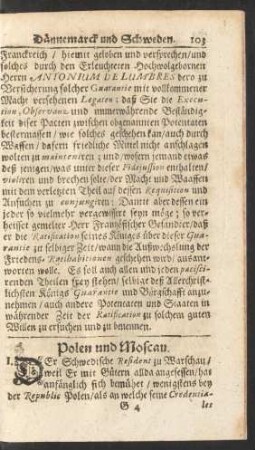 Dännemarck und Schweden. 103
Franckreich / hiemit geloben und versprechen / und
solches durch den Erleuchteten Hochwolgebornen
Herrn ANTONIUM DE LUMBRES dero zu
Versicherung solcher Guarantie mit vollkommener
Macht versehenen Legaten: daß Sie die Execu-
tion, Observanz und immerwährende Beständig-
keit diser Pacten zwischen obgenannten Potentaten
bestermassen / wie solches geschehen kan / auch durch
Waffen / dafern friedliche Mittel nicht anschlagen
wolten zu mainteniren; und / wofern jemand etwas
deß jenigen / was unter dieser Fidejussion enthalten /
violiren und brechen solte / der Macht und Waaffen
mit dem verletzten Theil auf dessen Requisition und
Ansuchen zu conjungiren: Damit aber dessen ein
jeder so vielmehr vergewissert seyn möge; so ver-
heisset gemelter Herr Französischer Gesandter / daß
er die Ratification seines Königes über dieser Gua-
rantie zu selbiger Zeit / wann die Außwechslung der
Friedens-Ratihabitionen geschehen wird / ausant-
worten wolle. Es soll auch allen und jeden pacisci-
renden Theilen frey stehen / selbiges deß Allerchrist-
lichsten Königs Guarantie und Bürgschafft anzu-
nehmen / auch andere Potentaten und Staaten in
währender Zeit der Ratification zu solchem guten
Willen zu ersuchen und zu benennen.
Polen und Moscau.
I. DEr Schwedische Resident zu Warschau /
weil Er mit Gütern allda angesessen / hat
anfänglich sich bemühet / wenigstens bey
der Republic Polen / als an welche seine Credentia-
G 4 les